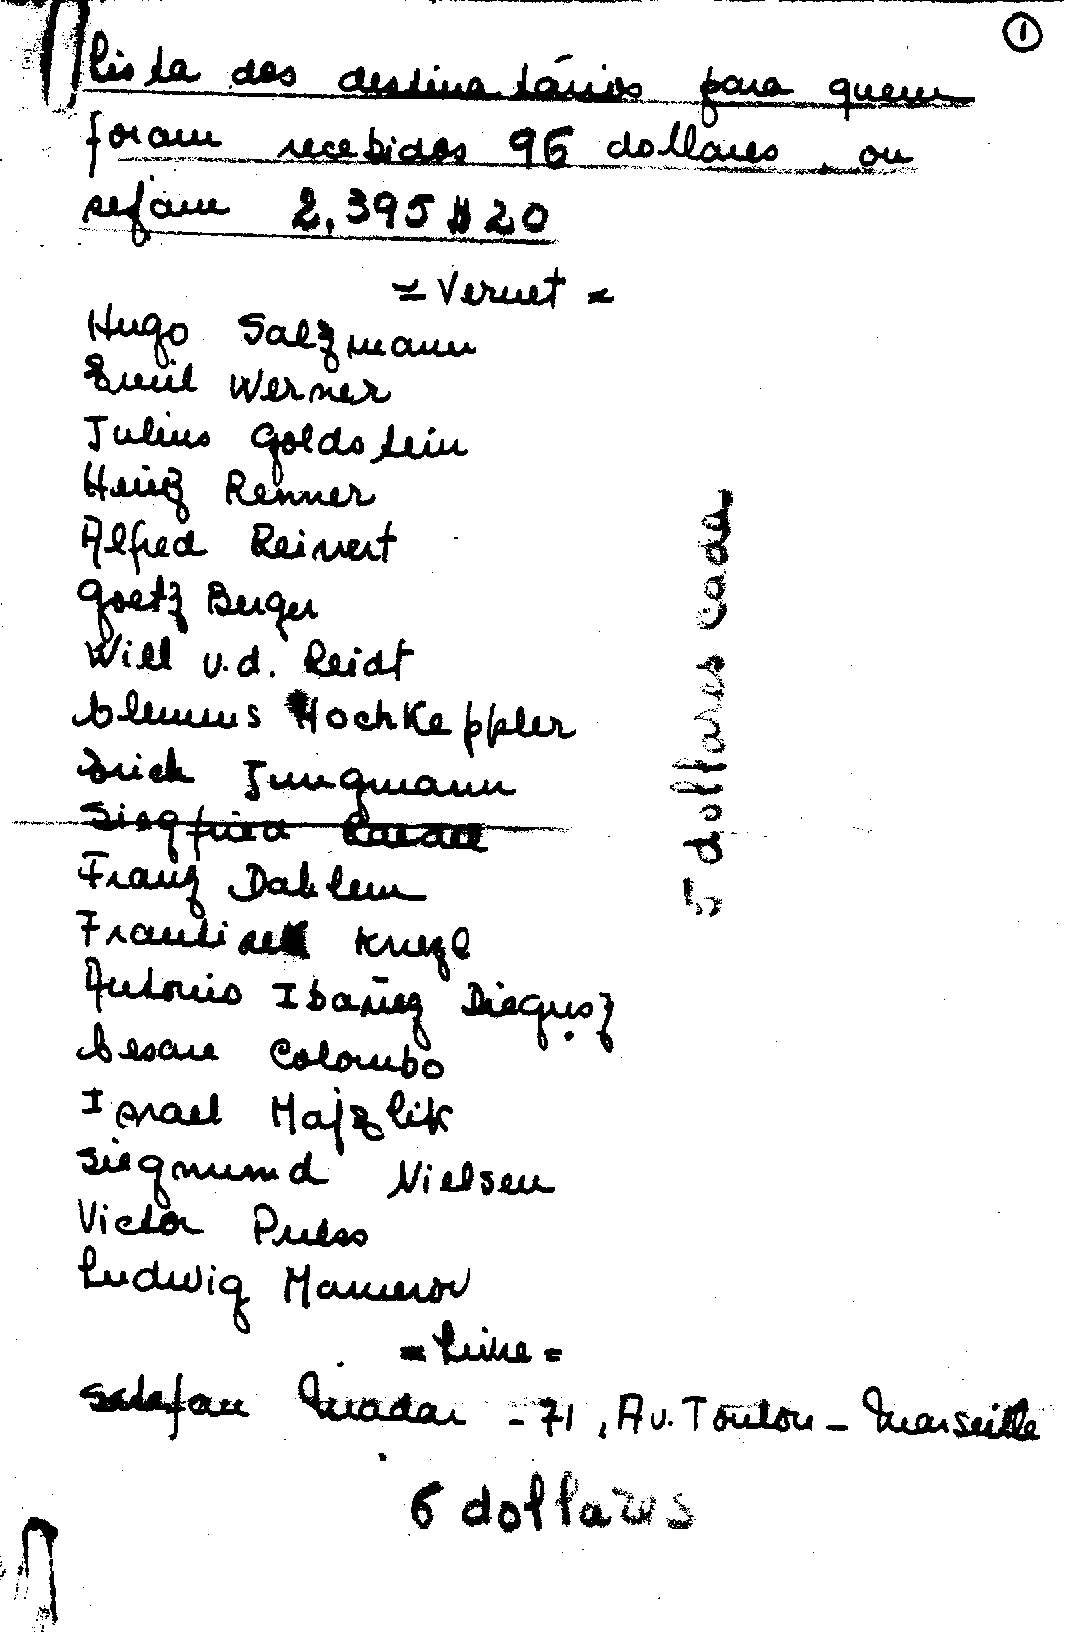 ①
Lista dos destinatários para quem
foram recebidos 96 dollares, ou
sejam 2,395$20
= Vernet =
Hugo Salzmann
Emil Werner
Julius Goldstein
Heinz Renner
Alfred Reinert
Goetz Berger
Will v.d. Reidt
Clemens Hochkeppler
Erich Jungmann
Siegfried
Franz Dahlem
Frantisek Kriegl
Antonio Ibañez Dieguez
Cesare Colombo
Israel Majzlik
Siegmund Nielsen
Victor Priess
Ludwig Mamerov
5 dollares cada
= Livre =
Madar - 71, Av. Toulon - Marseille
6 dollares